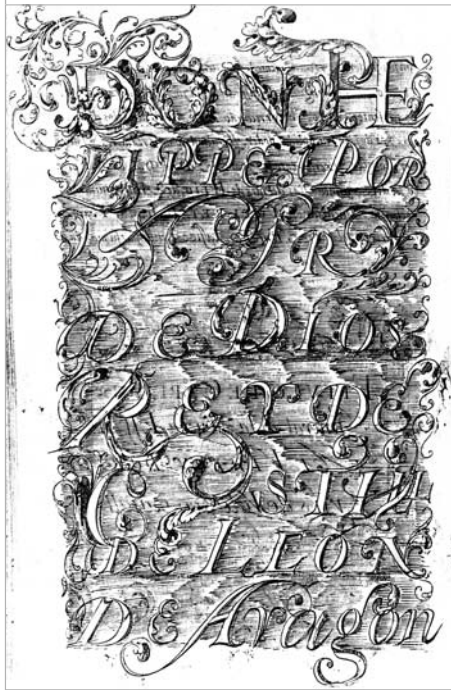 DON PHE
LIPPE POR
LA GRA
DE DIOS
REY DE
CASTILLA
DE LEON
DE Aragon